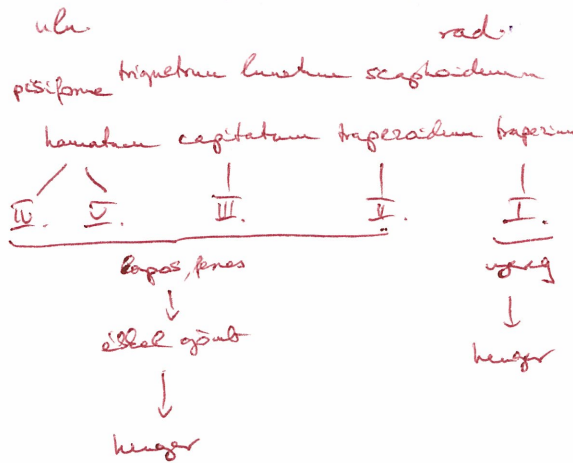 uln. rad.
pisiforme triquetrum lunatum scaphoideum
hamatum capitatum trapezoideum trapezium
IV. V. III. II. I.
lapos, feszes nyereg
↓ ↓
ékkel gömb henger
↓
henger